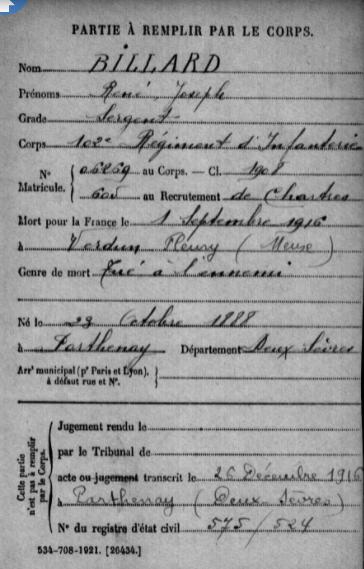 PARTIE À REMPLIR PAR LE CORPS.
Nom BILLARD
Prénoms René Joseph
Grade Sergent
Corps 102e Régiment d'Infanterie
N° Matricule. { 06269 au Corps. — Cl. 1908
605 au Recrutement de Chartres
Mort pour la France le 1 Septembre 1916
à Verdun Fleury (Meuse)
Genre de mort Tué à l'ennemi
Né le 23 Octobre 1888
à Parthenay Département Deux Sèvres
Arrt municipal (pr Paris et Lyon), à défaut rue et N°. {
Cette partie n'est pas à remplir par le Corps.
Jugement rendu le
par le Tribunal de
acte ou jugement transcrit le 26 Décembre 1916
à Parthenay (Deux-Sèvres)
N° du registre d'état civil 575/524
534-708-1921. [26434.]